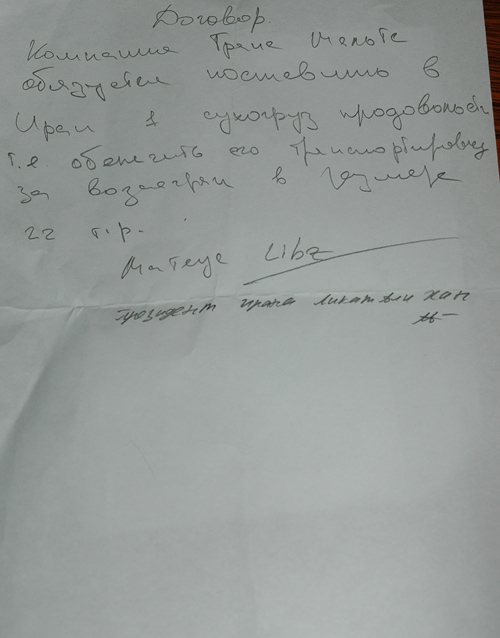 Договор.
Компания Транс Мальта
обязуется поставить в
Иран 1 сухогруз продовольств
т.е. обепечить его транспортировку
за вознагрян в размере
22 т.р.
Матеус Libz
президент ирана ликат али хан